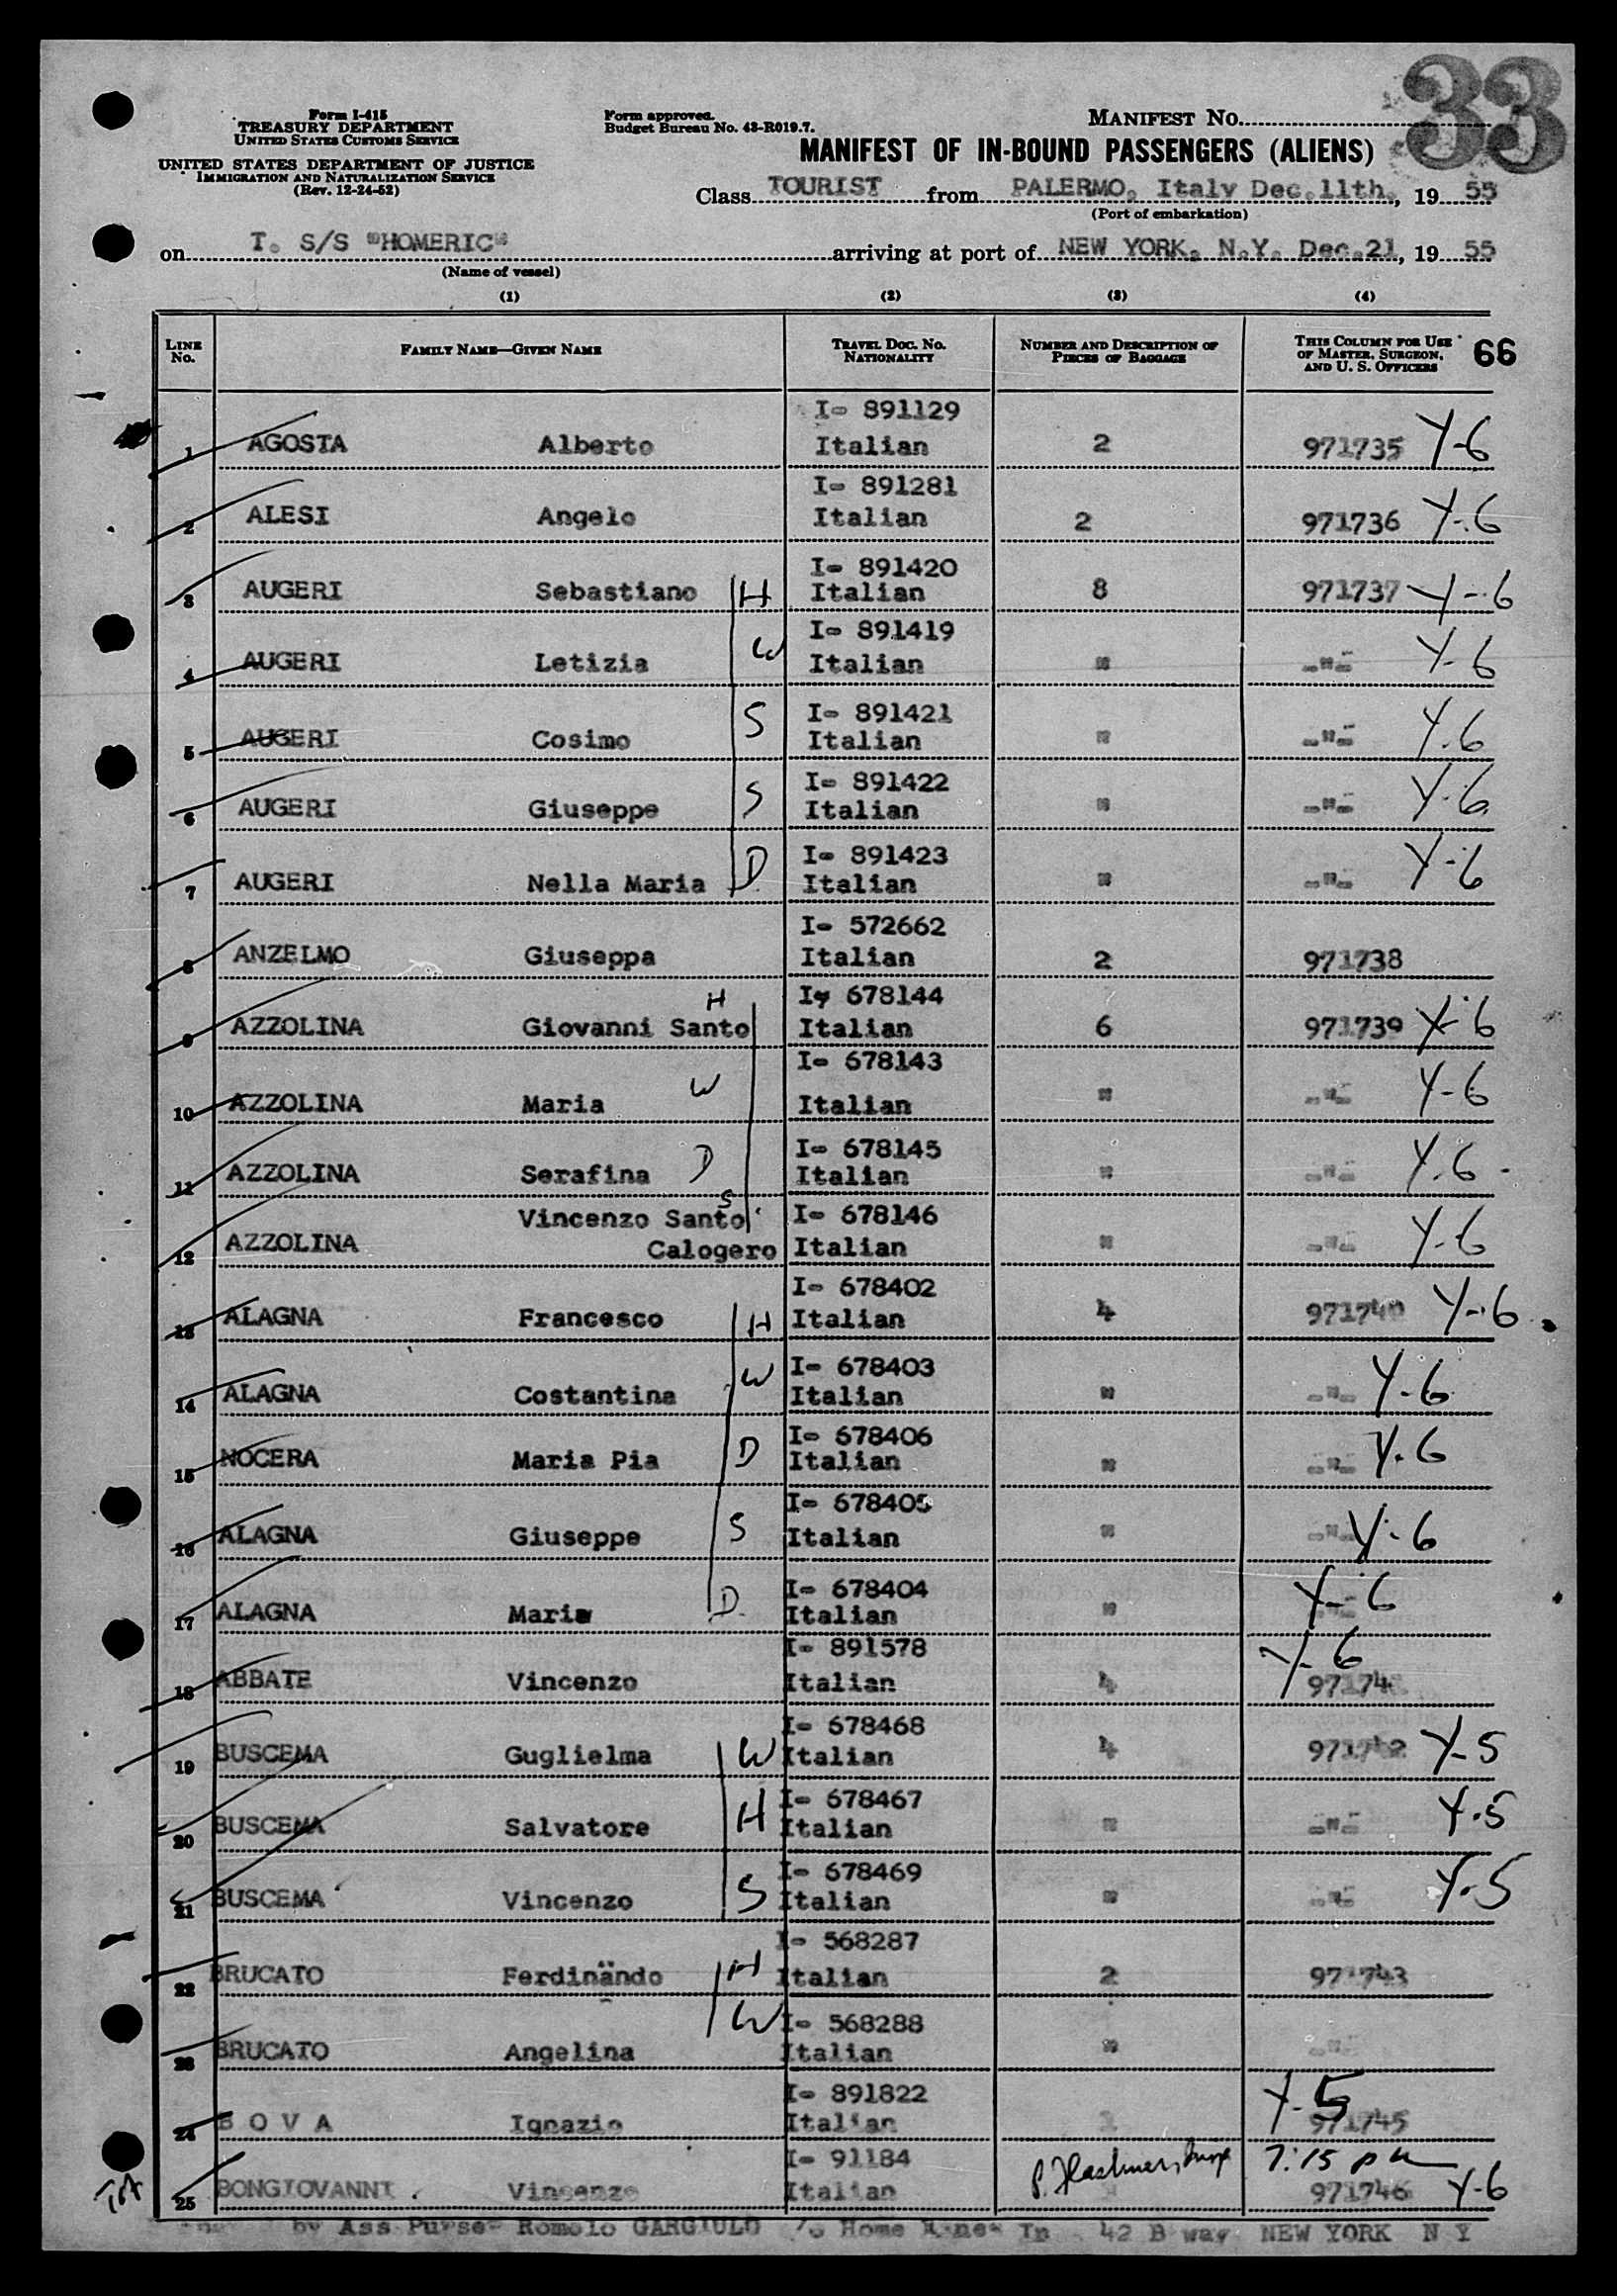 33
Form I-415
TREASURY DEPARTMENT
UNITED STATES CUSTOMS SERVICE
UNITED STATES DEPARTMENT OF JUSTICE
IMMIGRATION AND NATURALIZATION SERVICE
(Rev. 12-24-52)
Form approved.
Budget Bureau No. 43-R019.7.
MANIFEST NO.
MANIFEST OF IN-BOUND PASSENGERS (ALIENS)
Class TOURIST from PALERMO, Italy Dec.11th., 19 55
(Port of embarkation)
on T. S/S "HOMERIC" arriving at port of NEW YORK, N.Y. Dec.21, 19 55
(Name of vessel)
(1) (2) (3) (4)
LINE No. FAMILY NAME—GIVEN NAME TRAVEL DOC. NO. NATIONALITY NUMBER AND DESCRIPTION OF PIECES OF BAGGAGE THIS COLUMN FOR USE OF MASTER, SURGEON, AND U. S. OFFICERS 66
I- 891129
1 AGOSTA Alberto Italian 2 971735 Y-6
I- 891281
2 ALESI Angelo Italian 2 971736 Y-6
I- 891420
3 AUGERI Sebastiano H Italian 8 971737 Y-6
I- 891419
4 AUGERI Letizia W Italian " -"- Y-6
I- 891421
5 AUGERI Cosimo S Italian " -"- Y.6
I- 891422
6 AUGERI Giuseppe S Italian " -"- Y-6
I- 891423
7 AUGERI Nella Maria D Italian " -"- Y-6
I- 572662
8 ANZELMO Giuseppa Italian 2 971738
I- 678144
9 AZZOLINA Giovanni Santo H Italian 6 971739 Y-6
I- 678143
10 AZZOLINA Maria W Italian " -"- Y-6
I- 678145
11 AZZOLINA Serafina D Italian " -"- Y.6
Vincenzo Santo S I- 678146
12 AZZOLINA Calogero Italian " -"- Y-6
I- 678402
13 ALAGNA Francesco H Italian 4 971740 Y-6
I- 678403
14 ALAGNA Costantina W Italian " -"- Y-6
I- 678406
15 NOCERA Maria Pia D Italian " -"- Y.6
I- 678405
16 ALAGNA Giuseppe S Italian " -"- Y-6
I- 678404
17 ALAGNA Maria D. Italian " Y-6
I- 891578 Y-6
18 ABBATE Vincenzo Italian 4 97174
I- 678468
19 BUSCEMA Guglielma W Italian 4 971742 Y-5
I- 678467
20 BUSCEMA Salvatore H Italian " -"- Y.5
I- 678469
21 BUSCEMA Vincenzo S Italian " -"- Y.5
I- 568287
22 BRUCATO Ferdinando H Italian 2 971743
I- 568288
23 BRUCATO Angelina W Italian " -"-
I- 891822 Y-5
24 B O V A Ignazio Italian 971745
I- 91184 7:15 pm
25 BONGIOVANNI Vincenzo Italian 971746 Y-6
by Ass Purser Romolo GARGIULO c/o Home Lines In 42 B way NEW YORK N Y